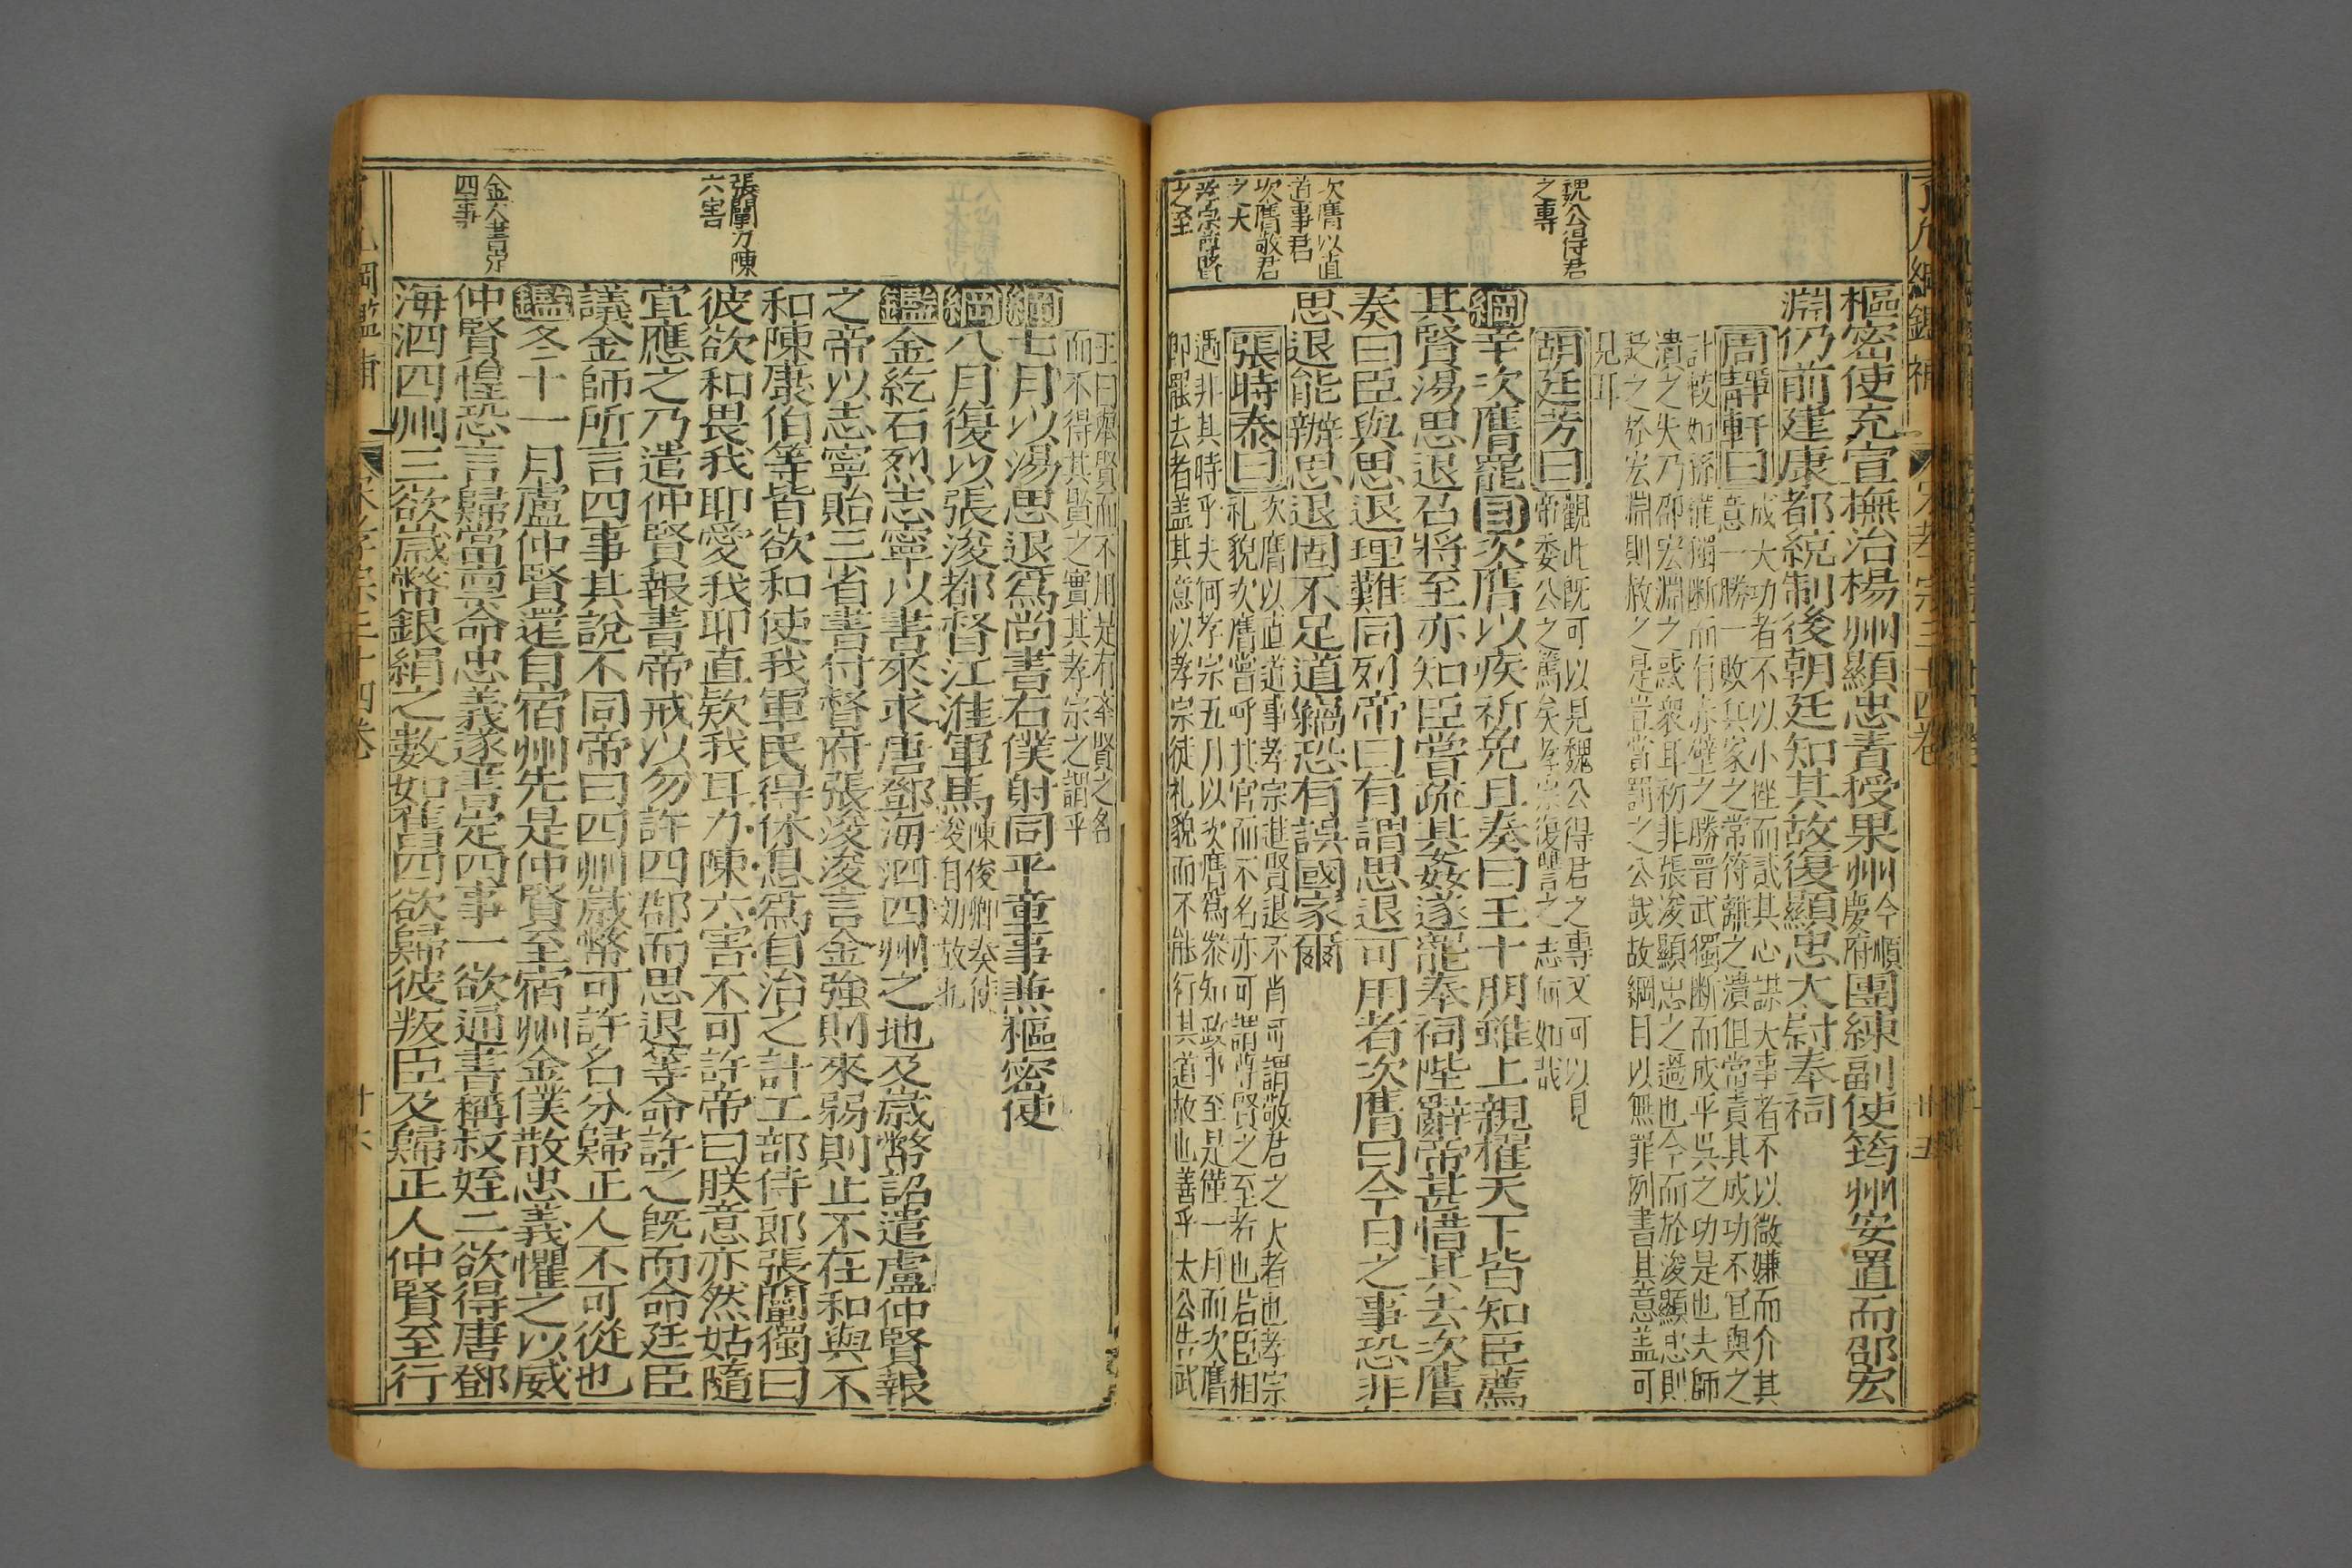 樞密使充宣撫治楊州顯忠責授果州今順慶府團練副使筠州安置而邵宏
淵仍前建康都統制後朝廷知其故復顯忠太尉奉祠
周靜軒曰
成大功者不以小挫而貳其心謀大事者不以微嫌而介其
意一勝一敗兵家之常符離之潰但當責其成功不冝與之
計較如孫龍獨断而有赤壁之勝晉武獨断而成平吳之功是也夫師
潰之失乃邵宏淵之惑衆耳初非張浚顯忠之過也今而於浚顯忠則
是之於宏淵則赦之是豈當罰之公哉故綱目以無罪例書其意盖可
見耳
魏公得君之專
胡廷芳曰
觀此既可以見魏公得君之專又可以見
帝委公之篤矣孝宗復讐之志何如哉
綱辛次膺罷目次膺以疾祈免且奏曰王十朋雖上親擢天下皆知臣薦
其賢湯思退召將至亦知臣嘗疏其姦遂罷奉祠陛辭帝甚惜其去次膺
奏曰臣與思退理難同列帝曰有謂思退可用者次膺曰今日之事恐非
思退能辦思退固不足道竊恐有誤國家爾
次膺以直道事君
次膺敬君之大
孝宗尊賢之至
張時泰曰
次膺以直道事孝宗進賢退不肖可謂敬君之大者也孝宗
礼貌次膺嘗呼其官而不名亦可謂尊賢之至者也君臣相
遇非其時乎夫何孝宗五月以次膺爲叅知政事至是僅一月而次膺
即罷去者盖其意以孝宗徒礼貌而不能行其道故也善乎太公告武
王曰舉賢而不用是有举賢之名
而不得其賢之實其孝宗之謂乎
綱七月以湯思退爲尚書右僕射同平章事兼樞密使
綱八月復以張浚都督江淮軍馬陳俊卿奏請浚自効故也
鑑金紇石烈志寧以書來求唐鄧海泗四州之地及歲幣詔遣盧仲賢報
之帝以志寧貽三省書付督府張浚浚言金強則來弱則止不在和與不
和陳康伯等皆欲和使我軍民得休息爲自治之計工部侍郎張闡獨曰
張闡力陳六害
彼欲和畏我耶愛我耶直欵我耳力陳六害不可許帝曰朕意亦然姑隨
宜應之乃遣仲賢報書帝戒以勿許四郡而思退等命許之既而命廷臣
議金師所言四事其說不同帝曰四州歲幣可許名分歸正人不可從也
鑑冬十一月盧仲賢還自宿州先是仲賢至宿州金僕散忠義懼之以威
金人書定四事
仲賢惶恐言歸當禀命忠義遂書定四事一欲通書稱叔姪二欲得唐鄧
海泗四州三欲歲幣銀絹之數如舊四欲歸彼叛臣及歸正人仲賢至行